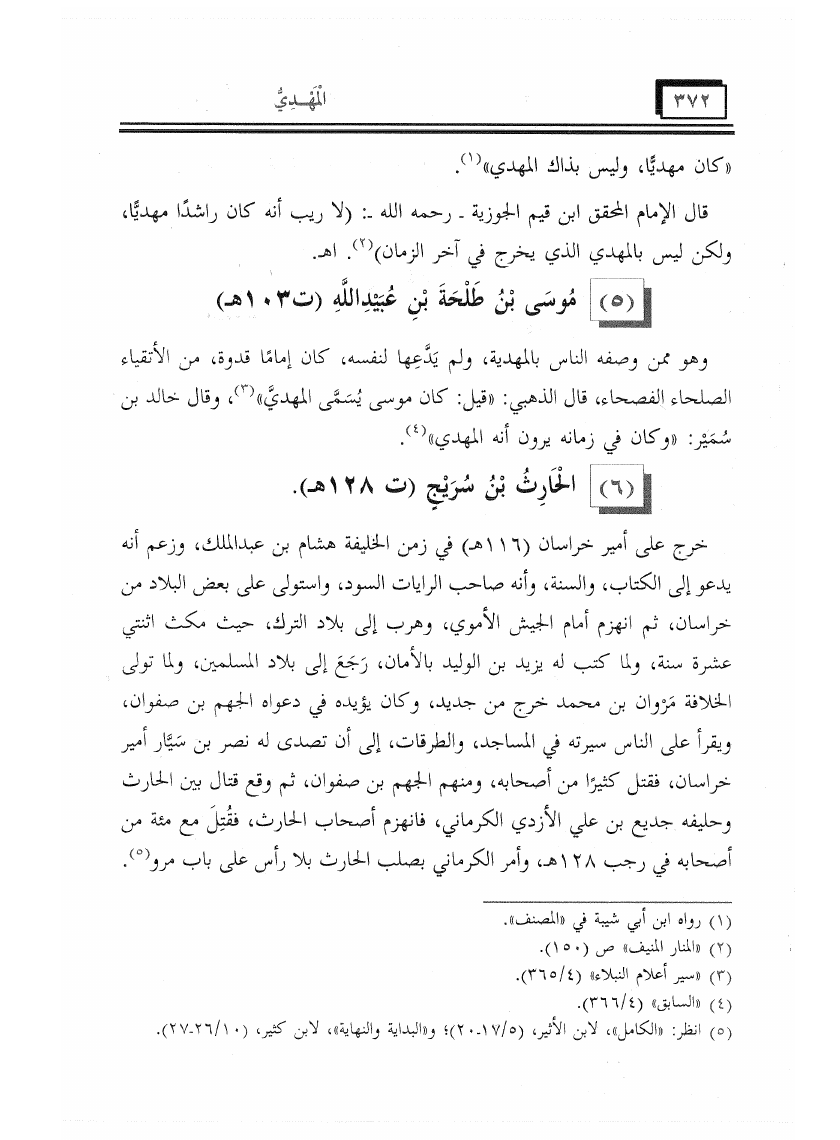 ٣٧٢
الْمَهْـدِيُّ
«كان مهديًّا، وليس بذاك المهدي»(١).
قال الإمام المحقق ابن قيم الجوزية ـ رحمه الله ـ: (لا ريب أنه كان راشدًا مهديًّا،
ولكن ليس بالمهدي الذي يخرج في آخر الزمان)(٢). اهـ.
(٥) مُوسَى بْنُ طَلْحَةَ بْنِ عُبَيْدِاللَّهِ (ت١٠٣هـ)
وهو ممن وصفه الناس بالمهدية، ولم يَدَّعِها لنفسه، كان إمامًا قدوة، من الأتقياء
الصلحاء الفصحاء، قال الذهبي: «قيل: كان موسى يُسَمَّى المهديَّ»(٣)، وقال خالد بن
سُمَيْر: «وكان في زمانه يرون أنه المهدي»(٤).
(٦) الْحَارِثُ بْنُ سُرَيْجٍ (ت ١٢٨هـ).
خرج على أمير خراسان (١١٦هـ) في زمن الخليفة هشام بن عبدالملك، وزعم أنه
يدعو إلى الكتاب، والسنة، وأنه صاحب الرايات السود، واستولى على بعض البلاد من
خراسان، ثم انهزم أمام الجيش الأموي، وهرب إلى بلاد الترك، حيث مكث اثنتي
عشرة سنة، ولما كتب له يزيد بن الوليد بالأمان، رَجَعَ إلى بلاد المسلمين، ولما تولى
الخلافة مَرْوان بن محمد خرج من جديد، وكان يؤيده في دعواه الجهم بن صفوان،
ويقرأ على الناس سيرته في المساجد، والطرقات، إلى أن تصدى له نصر بن سَيَّار أمير
خراسان، فقتل كثيرًا من أصحابه، ومنهم الجهم بن صفوان، ثم وقع قتال بين الحارث
وحليفه جديع بن علي الأزدي الكرماني، فانهزم أصحاب الحارث، فقُتِلَ مع مئة من
أصحابه في رجب ١٢٨هـ، وأمر الكرماني بصلب الحارث بلا رأس على باب مرو(٥).
(١) رواه ابن أبي شيبة في «المصنف».
(٢) «المنار المنيف» ص (١٥٠).
(٣) «سير أعلام النبلاء» (٣٦٥/٤).
(٤) «السابق» (٣٦٦/٤).
(٥) انظر: «الكامل»، لابن الأثير، (١٧/٥ـ٢٠)؛ و«البداية والنهاية»، لابن كثير، (٢٦/١٠ـ٢٧).